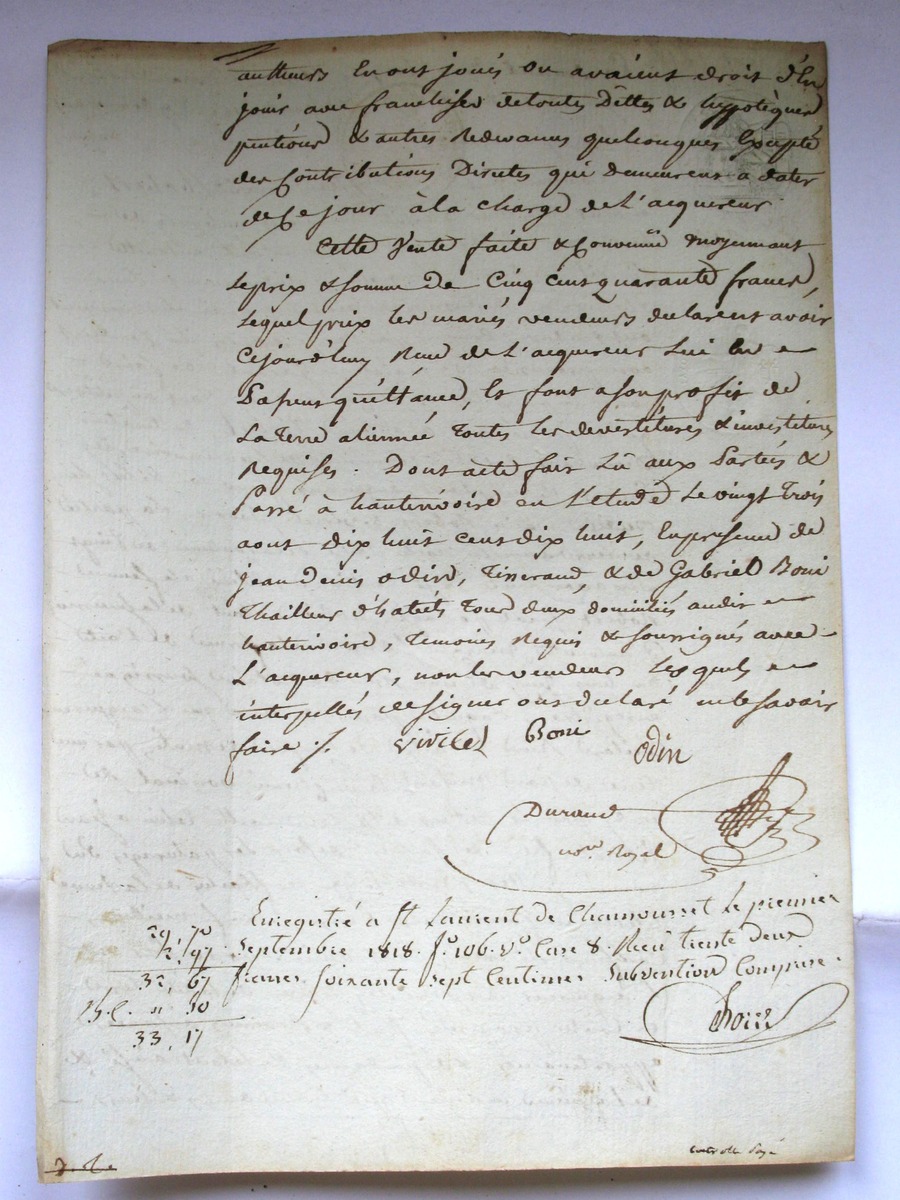 autheurs En ont jouis ou avaient droit d'En
jouir avec franchise de toutes Dèttes & hyppotèques
pentions & autres Redevances quelconques Excepté
des Contributions Directes qui demeurent a dater
de Ce jour à la charge de L'acquereur
Cette Vente faite & Convenüe moyennant
Le prix & somme De Cinq Cens quarante francs,
Lequel prix les mariés vendeurs declarent avoir
Cejourd'huy Reçu de L'acquereur Lui En
Passent quittance, Et font a son profit de
La Terre alienneé Toutes Les devestitures & investitures
Requises. Dont acte fait Lû aux Parties &
Passé à hauterivoire en L'etude Le vingt trois
aout dix huit cens dix huit, En presence de
jean Denis odin, Tisserand, & de Gabriel Boni
Thailleur d'habits Tous deux domiciliés audit
hauterivoire, Temoins Requis & soussignés avec
L'acquereur, non les vendeurs Lesquels
interpellés de signer ont declaré ne le savoir
faire ./.
Boni
odin
Durand
nore Royal
Enregistré a St Laurent de Chamousset Le premier
Septembre 1818. fo. 106. Vo. Case 8. Recu trente deux
francs soixante sept Centimes Subvention Comprise.
29, 70
2, 97
32, 67
" 50
33, 17